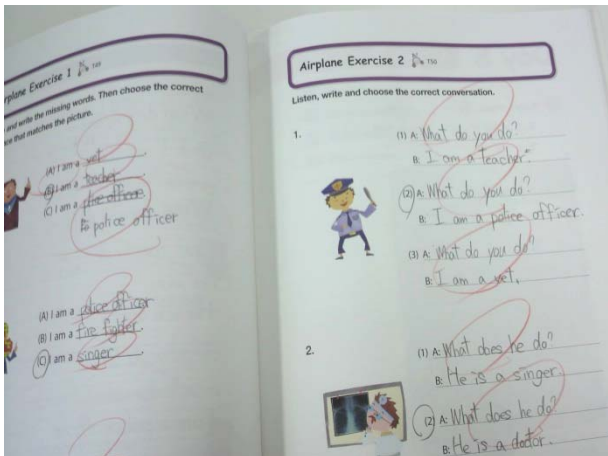 rplane Exercise 1
and write the missing words. Then choose the correct
ce that matches the picture.
(A) I am a vet.
(B) I am a teacher.
(C) I am a
police officer
(A) I am a police officer
(B) I am a fire fighter.
(C) I am a singer.
Airplane Exercise 2
Listen, write and choose the correct conversation.
1.
(1) A: What do you do?
B: I am a teacher.
(2) A: What do you do?
B: I am a police officer.
(3) A: What do you do?
B: I am a vet.
2.
(1) A: What does he do?
B: He is a singer.
(2) A: What does he do?
B: He is a doctor.